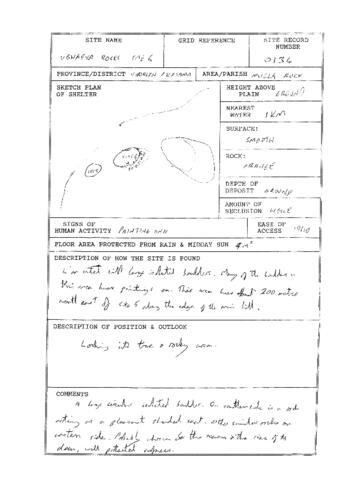 SITE NAME
GRID REFERENCE
SITE RECORD
NUMBER
ROCKS SITE 6
0134
PROVINCE/DISTRICT
AREA/PARISH ROCK
SKETCH PLAN
OF SHELTER
HEIGHT ABOVE
PLAIN GROUND
NEAREST
WATER 1KM
SURFACE:
SMOOTH
ROCK:
GRANITE
DEPTH OF
DEPOSIT GROUND
AMOUNT OF
SECLUSION
SIGNS OF
HUMAN ACTIVITY PAINTING
EASE OF
ACCESS 10/10
FLOOR AREA PROTECTED FROM RAIN & MIDDAY SUN
DESCRIPTION OF HOW THE SITE IS FOUND
with large isolated boulders. Many of the boulders in
this area have paintings on. This area is about 200 metres
north east of site 5 along the edge of the main hill.
DESCRIPTION OF POSITION & OUTLOOK
Looking into tree & rocky area.
COMMENTS
A large circular isolated boulder. On southern side is a rock
acting as a pleasant shaded seat. other similar rocks on
western side. Probably chosen for the and the size of the
well protected